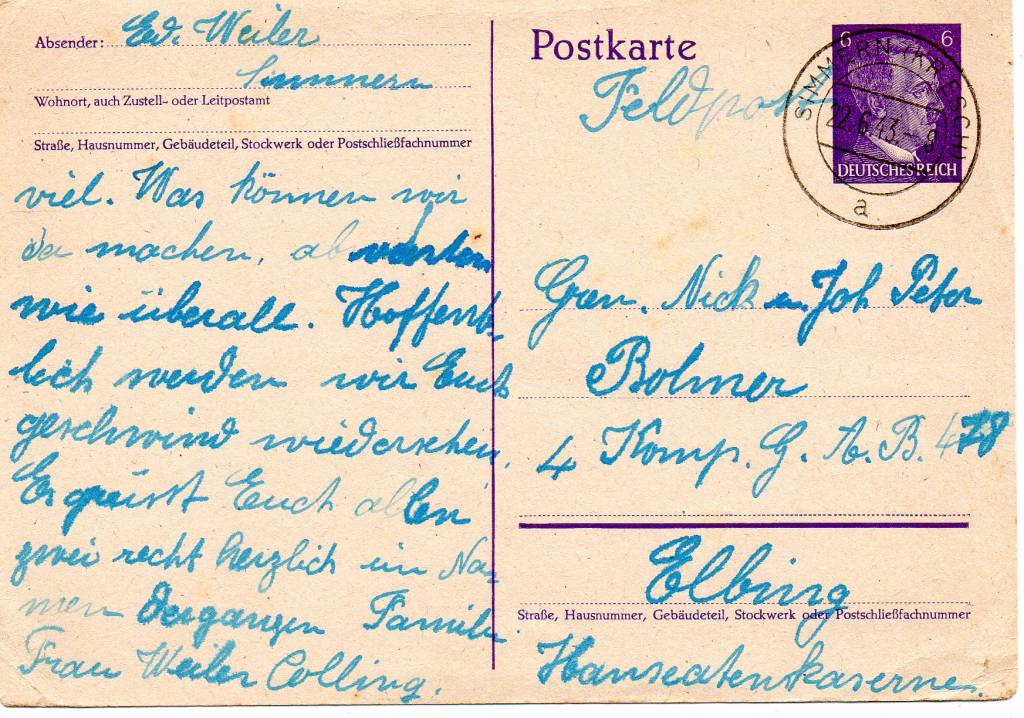 Absender: Ed. Weiler
Simmern
Wohnort, auch Zustell- oder Leitpostamt
Straße, Hausnummer, Gebäudeteil, Stockwerk oder Postschließfachnummer
viel. Was können wir
da machen, abwarten
wie überall. Hoffent-
lich werden wir Euch
geschwind wiedersehen.
Es grüsst Euch allen
zwei recht herzlich im Na-
men der ganzen Famili
Frau Weiler Colling.
Postkarte
Feldpost
6 6
DEUTSCHES REICH
SIMMERN (KR ESCH)
22.6.43.- 9
a
Gren. Nick u. Joh Peter
Bolmer
4 Komp. G. A. B. 478
Elbing
Straße, Hausnummer, Gebäudeteil, Stockwerk oder Postschließfachnummer
Hanseatenkaserne.